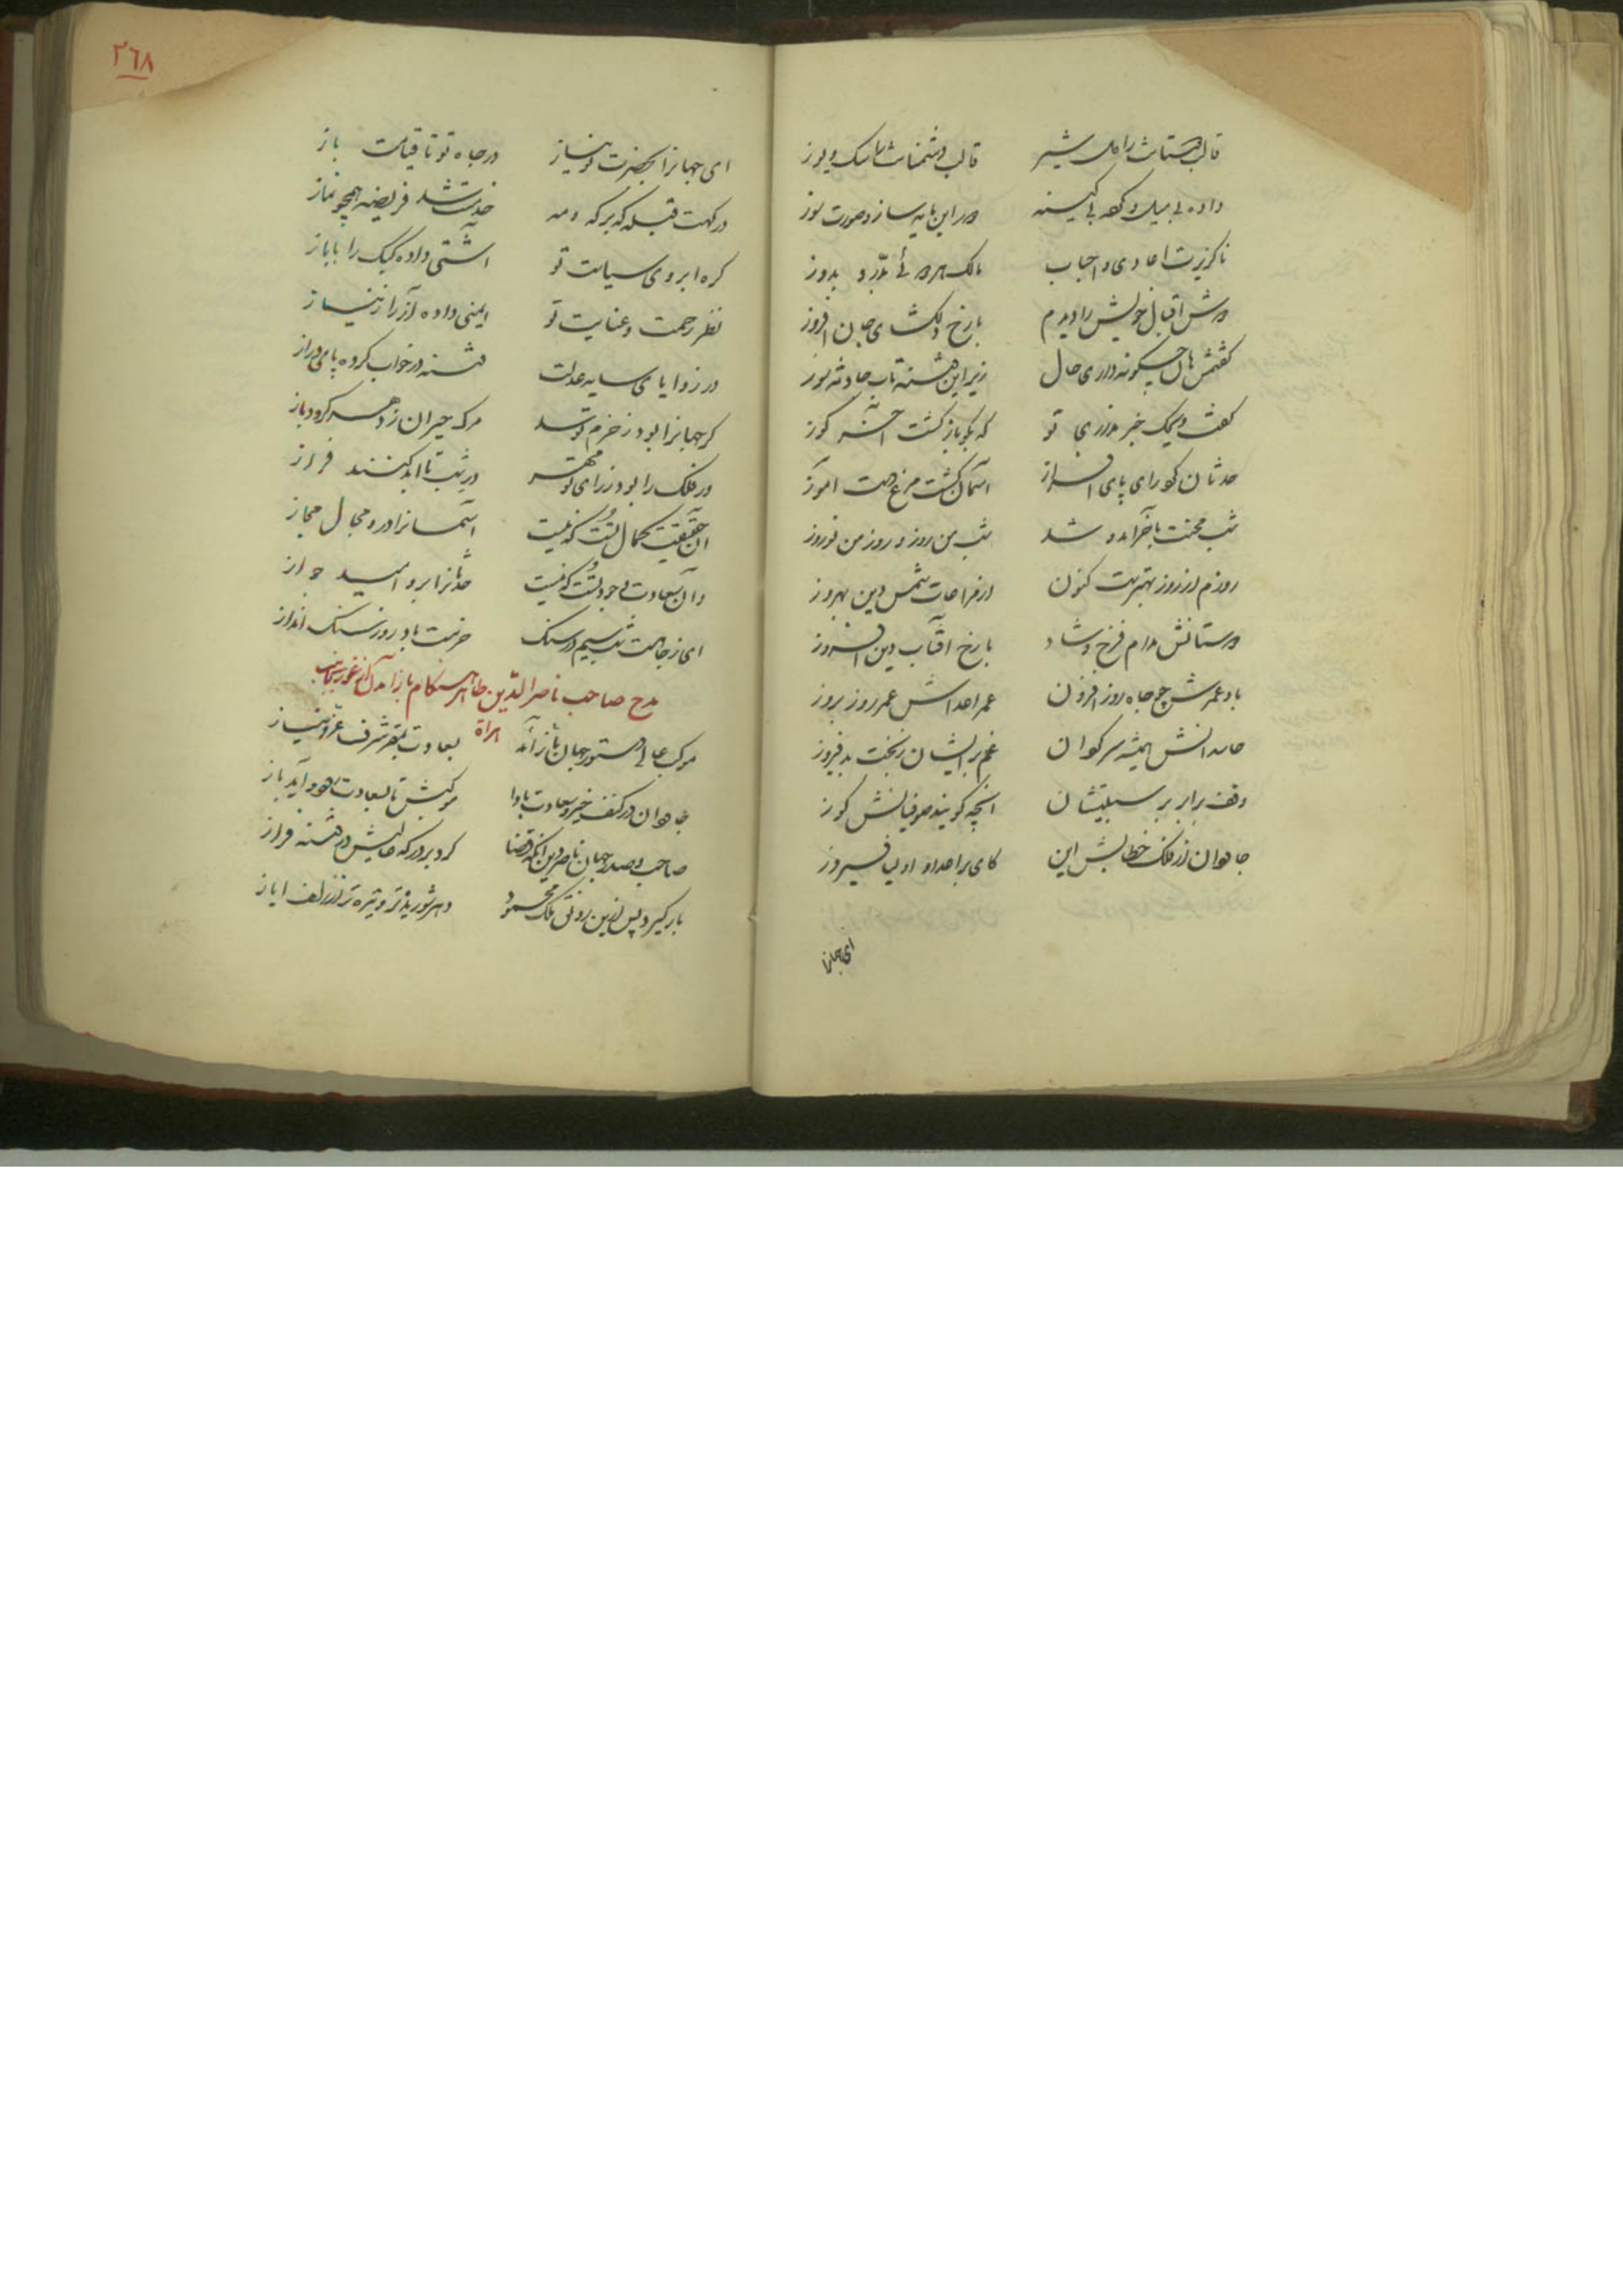 قالب دوستانت را دل شیر قالب دشمنانت با سگ و یوز
داده بی میل و کعه بی کینه در این مایه ساز و صورت سوز
ناگزیرت اعادی و احباب بدرد و بدوز
دوش اقبال خویش را دیدم با رخ دلگشای جان افروز
گفتمش هان چگونه داری حال زیر این حادثه سوز
گفت ویحک خبر نداری تو که نکو باز گشت آخر گوز
حدثان کو رای پای افزار آسمان گشت مرغ دست آموز
شب محنت بآخر آمد و شد شب من روز و روز من نوروز
روزم از روز بهترست کنون از مراعات شمس دین بهروز
دوستانش مدام فرخ و شاد با رخ آفتاب دین افروز
باد عمرش چو جاه روز افزون عمر اعداش عمر روز بروز
حاسدانش همیشه سرگردان غم بر ایشان ز بخت بد فیروز
وقف برابر بر سبلتشان آنچه گویند صوفیانش گوز
جاودان از فلک خطابش این کای بر اعدا و اولیا فیروز
ای جهانرا
٢٦٨
ای جهانرا بحضرت تو نیاز در جاه تو تا قیامت باز
درگهت قبله که بر که و مه خدمتت شد فریضه همچو نماز
کره ابروی سیاست تو آشتی داده کبک را با باز
نظر رحمت و عنایت تو ایمنی داده آز را ز نیاز
در زوایای سایه عدلت فتنه در خواب کرده پای دراز
گر جهانرا بود ز خزم تو سد مرگ حیران ز دهر گردد باز
ور فلک را بود ز رای تو مهر در شب تا ابد کنند فراز
آن حقیقت کمال تست که نیست آسمانرا درو مجال مجاز
وان سعادت وجود تست که نیست حدثانرا برو امید جواز
ای ز جاهت شب سیم در سنگ حرمتت باد روز سنگ انداز
مدح صاحب ناصر الدین طاهر هنگام باز آمدن از غور بجانب هراة
موکب عالی دستور جهان باز آمد بسعادت بمقر شرف عز و نیاز
جاودان در کنف خیر و سعادت بادا موکبش تا بسعادت رود و آید باز
صاحب و صدر جهان ناصر دین آنکه قضا کرد بر درگه عالیش در فتنه فراز
بار گیرد پس ازین رونق ملک محمود دهر شوریده‌تر و تیره‌تر از زلف ایاز